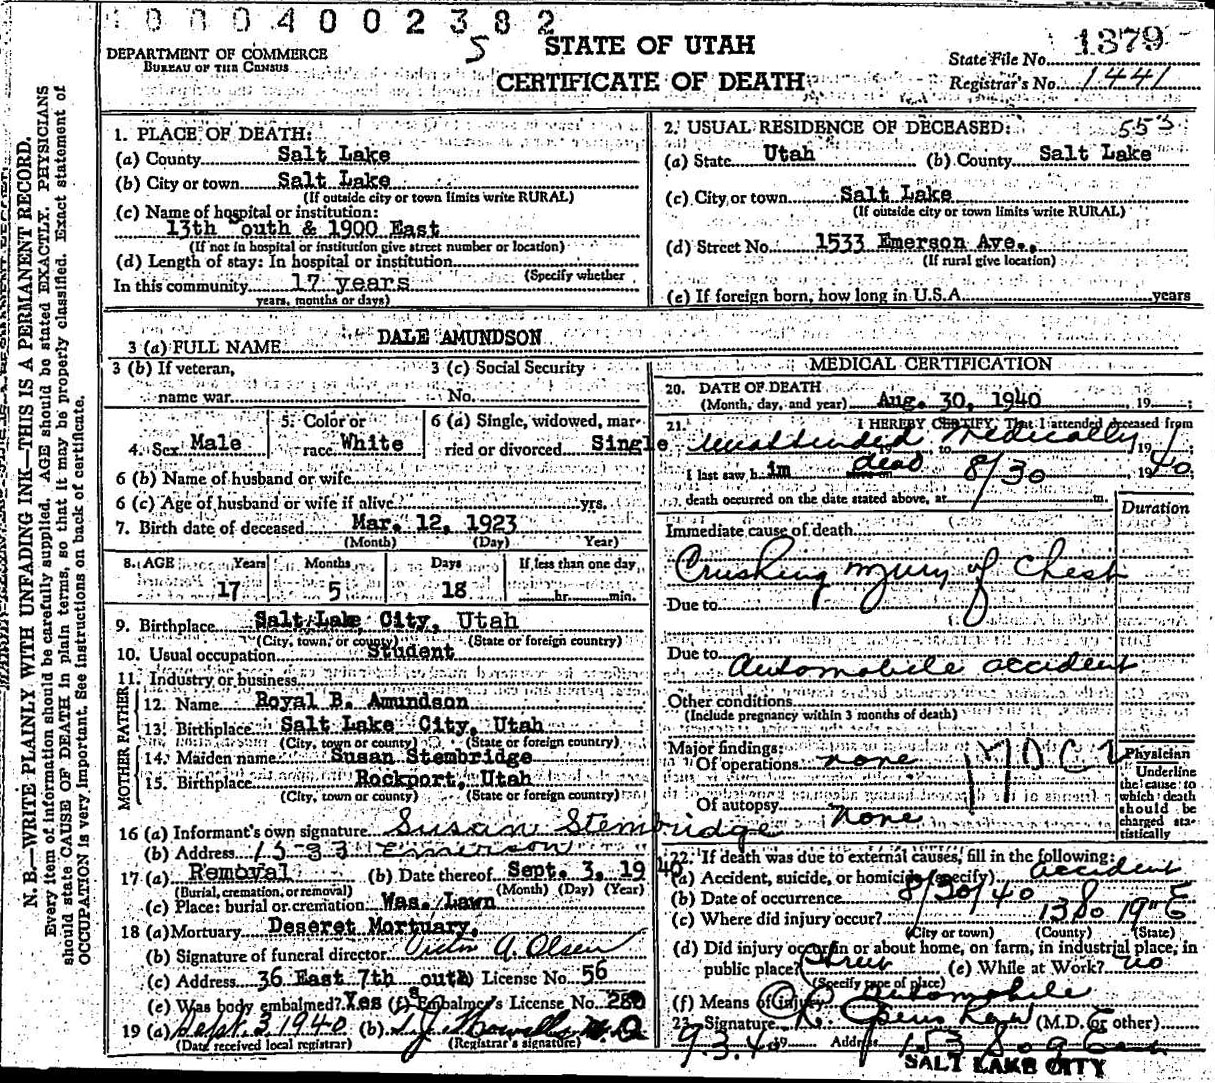 0004002382
5
STATE OF UTAH
DEPARTMENT OF COMMERCE
BUREAU OF THE CENSUS
CERTIFICATE OF DEATH
State File No. 1379
Registrar's No. 1441
N. B.—WRITE PLAINLY WITH UNFADING INK—THIS IS A PERMANENT RECORD.
Every item of information should be carefully supplied. AGE should be stated EXACTLY. PHYSICIANS
should state CAUSE OF DEATH in plain terms, so that it may be properly classified. Exact statement of
OCCUPATION is very important. See instructions on back of certificate.
1. PLACE OF DEATH:
(a) County Salt Lake
(b) City or town Salt Lake
(If outside city or town limits write RURAL)
(c) Name of hospital or institution:
13th outh & 1900 East
(If not in hospital or institution give street number or location)
(d) Length of stay: In hospital or institution
(Specify whether
In this community 17 years
years, months or days)
2. USUAL RESIDENCE OF DECEASED: 553
(a) State Utah (b) County Salt Lake
(c) City or town Salt Lake
(If outside city or town limits write RURAL)
(d) Street No. 1533 Emerson Ave.,
(If rural give location)
(e) If foreign born, how long in U.S.A. years
3 (a) FULL NAME DALE AMUNDSON
3 (b) If veteran,
name war
3 (c) Social Security
No.
4. Sex Male
5. Color or
race White
6 (a) Single, widowed, mar-
ried or divorced Single
6 (b) Name of husband or wife
6 (c) Age of husband or wife if alive yrs.
7. Birth date of deceased Mar. 12, 1923
(Month) (Day) Year)
8. AGE Years Months Days If less than one day
17 5 18 hr. min.
9. Birthplace Salt Lake City, Utah
(City, town, or county) (State or foreign country)
10. Usual occupation Student
11. Industry or business
FATHER
12. Name Royal B. Amundson
13. Birthplace Salt Lake City, Utah
(City, town or county) (State or foreign country)
MOTHER
14. Maiden name Susan Stembridge
15. Birthplace Rockport, Utah
(City, town or county) (State or foreign country)
16 (a) Informant's own signature Susan Stembridge
(b) Address 1533 Emerson
17 (a) Removal (b) Date thereof Sept. 3, 1940
(Burial, cremation, or removal) (Month) (Day) (Year)
(c) Place: burial or cremation Was. Lawn
18 (a) Mortuary Deseret Mortuary,
(b) Signature of funeral director Victor A. Olsen
(c) Address 36 East 7th outh License No. 56
(e) Was body embalmed? Yes (f) Embalmer's License No. 280
19 (a) Sept. 3 1940 (b)
(Date received local registrar) (Registrar's signature)
MEDICAL CERTIFICATION
20. DATE OF DEATH
(Month, day, and year) Aug. 30, 1940 19 ;
21. I HEREBY CERTIFY, That I attended deceased from
unattended medically 19
I last saw him dead 8/30 1940
death occurred on the date stated above, at m.
Duration
Immediate cause of death
Crushing injury of chest
Due to
Due to
Automobile accident
Other conditions
(Include pregnancy within 3 months of death)
Major findings:
Of operations none
Of autopsy none
Physician
Underline
the cause to
which death
should be
charged sta-
tistically
22. If death was due to external causes, fill in the following:
(a) Accident, suicide, or homicide (specify) accident
(b) Date of occurrence 8/30/40
(c) Where did injury occur? 13 So 19" E
(City or town) (County) (State)
(d) Did injury occur in or about home, on farm, in industrial place, in
public place? Street (e) While at Work? no
(Specify type of place)
(f) Means of injury Automobile
23. Signature (M.D. or other)
9.3.40 19 Address
SALT LAKE CITY